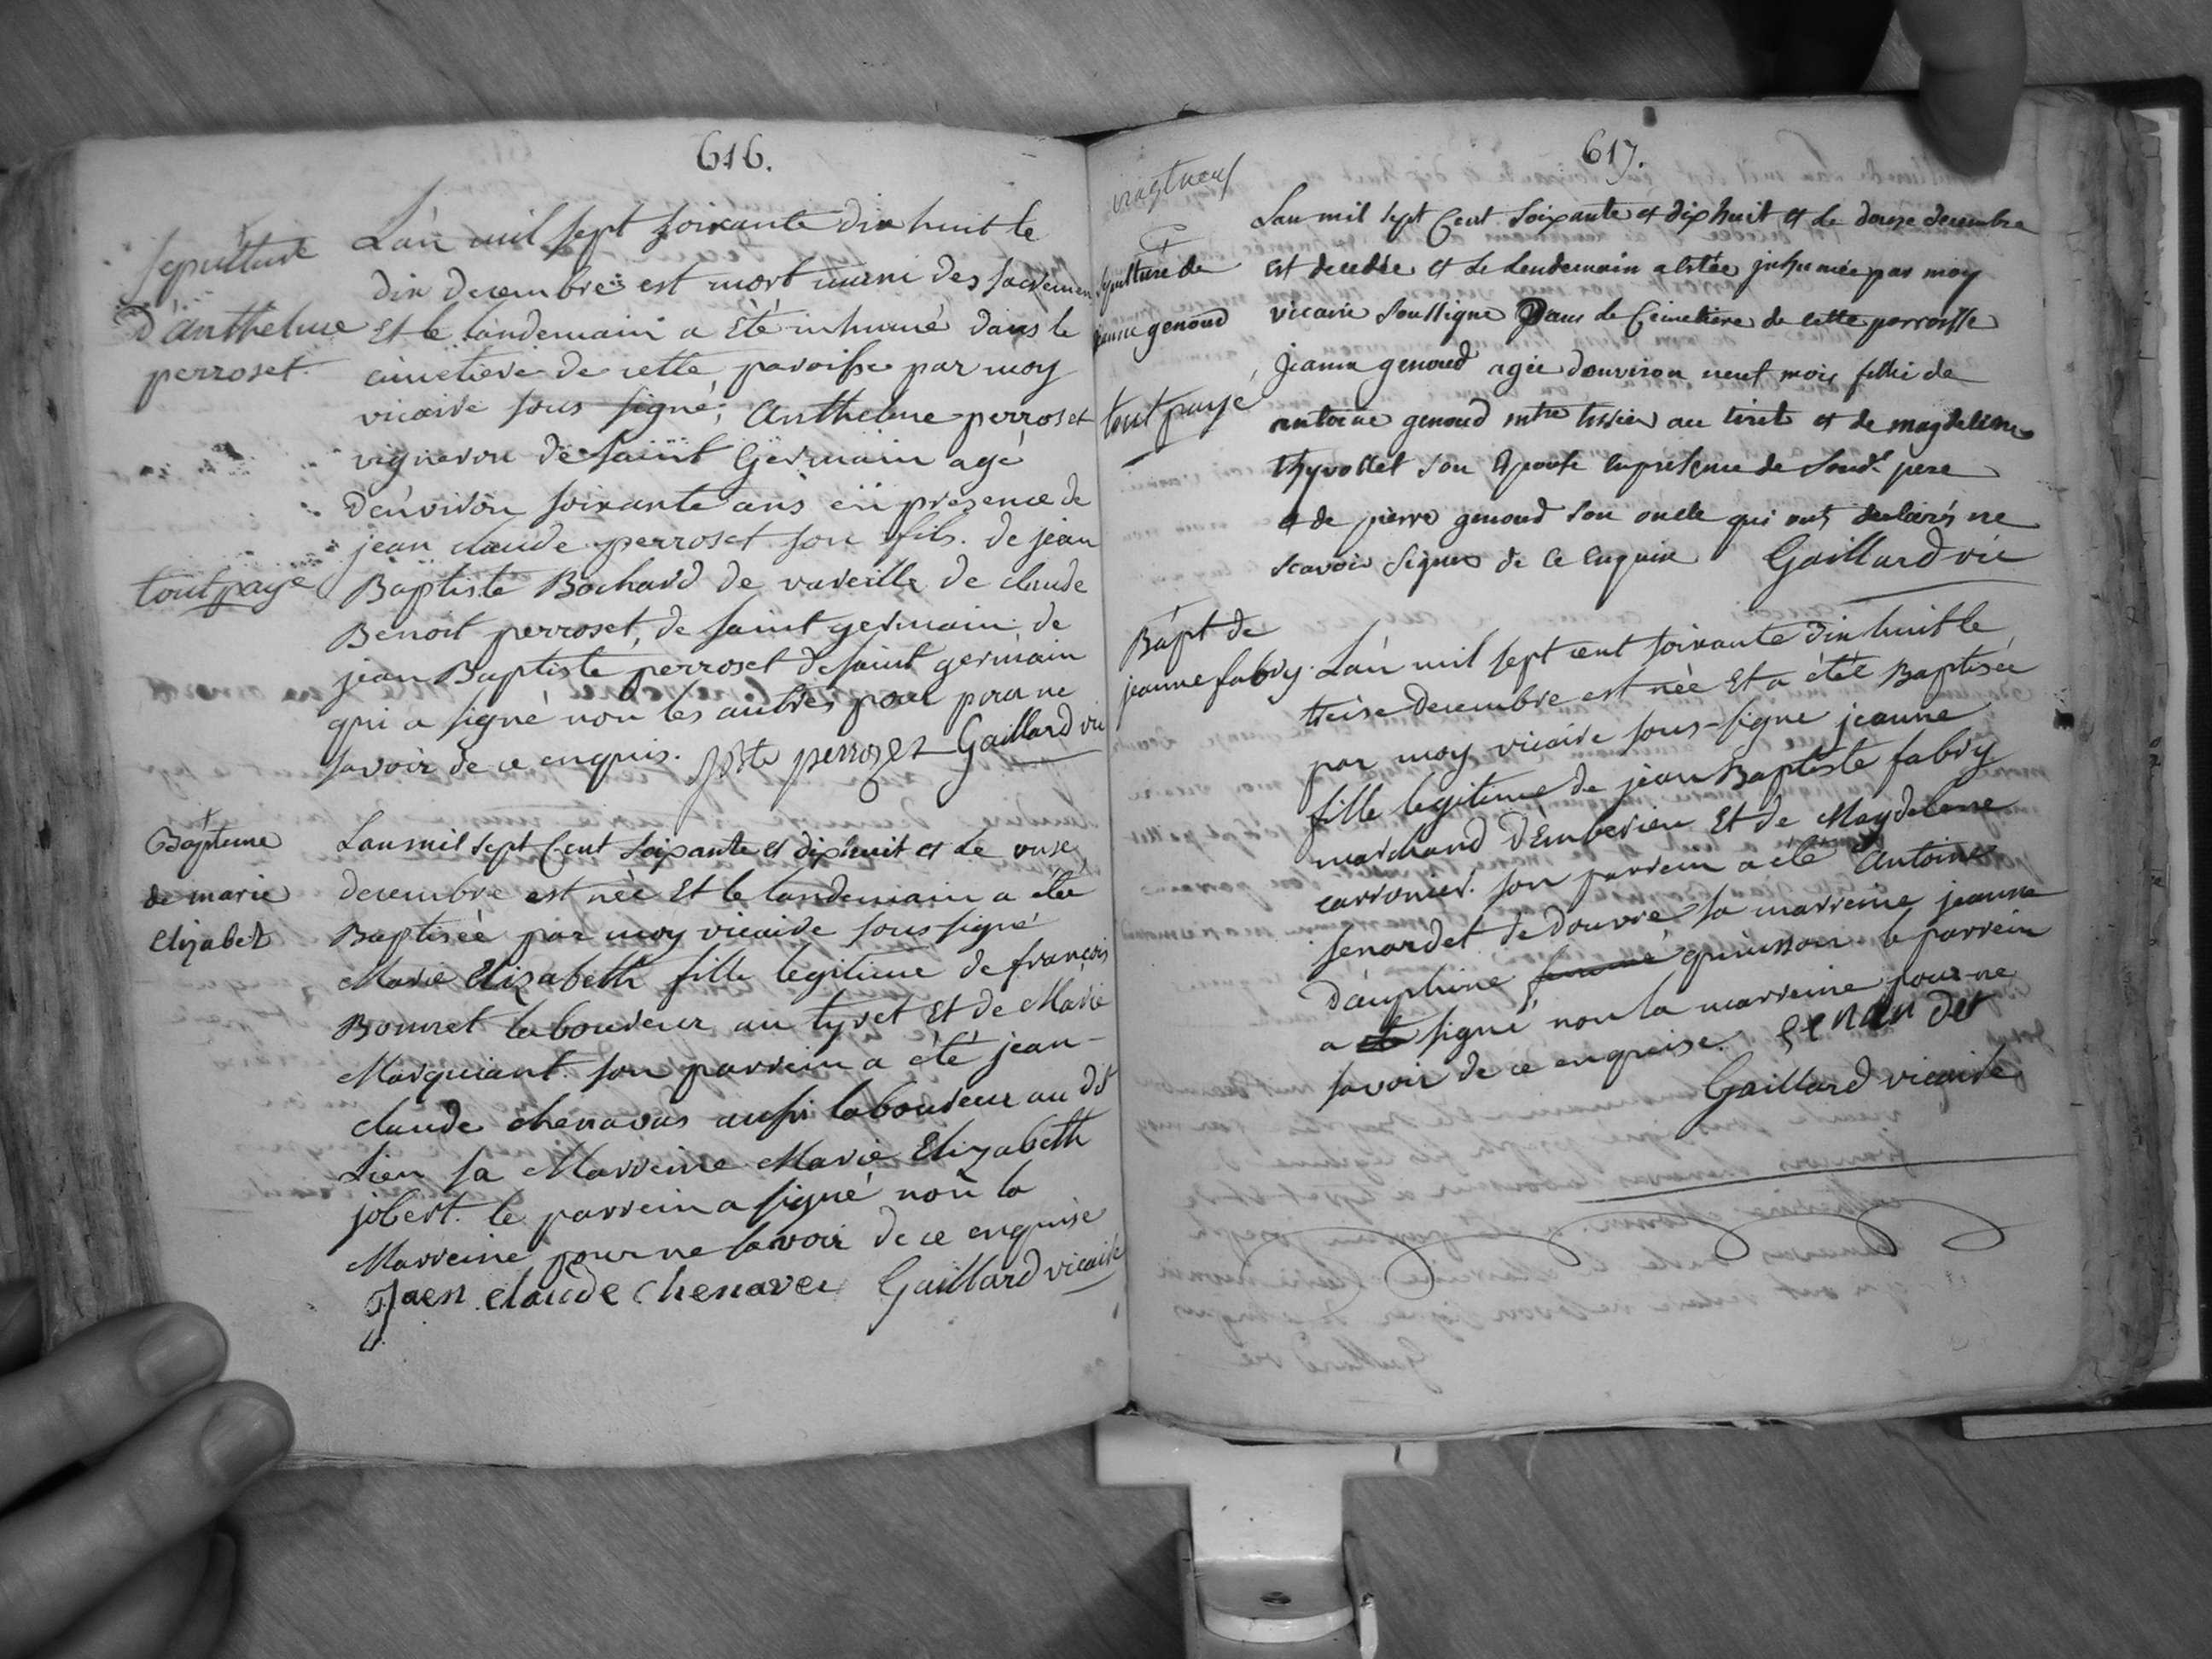 616.
sepulture
D'anthelme
perroset.
L'an mil sept soixante dix huit le
dix decembre est mort muni des sacremen
Et le landemain a été inhumé dans le
cimetiere de cette paroisse par moy
vicaire sous signé, Anthelme perroset
vigneron de saint Germain agé
d'environ soixante ans en presence de
jean claude perroset son fils. de jean
tout paye
Baptiste Bochard de vareille de claude
Benoit perroset, de saint germain de
jean Baptiste perroset de saint germain
qui a signé non les autres pour ne
savoir de ce enquis. perroset Gaillard vic
Bapteme
de marie
Elizabet
Lan mil sept Cent soixante et dixhuit et Le onse
decembre est née Et le landemain a été
Baptisée par moy vicaire sous signé
Marie Elizabeth fille legitime de françois
Bonnet laboureur au tyret Et de Marie
Marquiant. son parrein a été jean-
claude chenavas aussi laboureur au dt
Lieu sa Marreine Marie Elizabeth
jobert. le parrein a signé non la
Marreine pour ne savoir de ce enquise
Jaen claude Chenavei Gaillard vicaire
617.
vingt neuf
sepulture de
jeanne genoud
tout payé
Lan mil sept Cent soixante et dixhuit et le douze decembre
est decedée et le Lendemain a estée inhumée par moy
vicaire soussigne Dans le Cimetiere de cette parroisse
Jeanne genoud agée denviron neuf mois fille de
antoine genoud mtre tissier au tiret et de magdeleine
thyvollet son Epouse en presence de soudt pere
et de pierre genoud son oncle qui ont declarés ne
scavoir signer de ce Enquis Gaillard vic
Bapt de
jeanne fabry.
L'an mil sept cent soixante dix huit le
treise decembre est née Et a étée Baptisée
par moy vicaire sous-signe jeanne
fille legitime de jean Baptiste fabry
marchand d'Emberieu Et de Magdelene
carronier. son parrein a été Antoine
senardet de Douvre, sa marreine jeanne
dauphine femme quinsson le parrein
a signé non la marreine pour ne
savoir de ce enquise. senardet
Gaillard vicaire